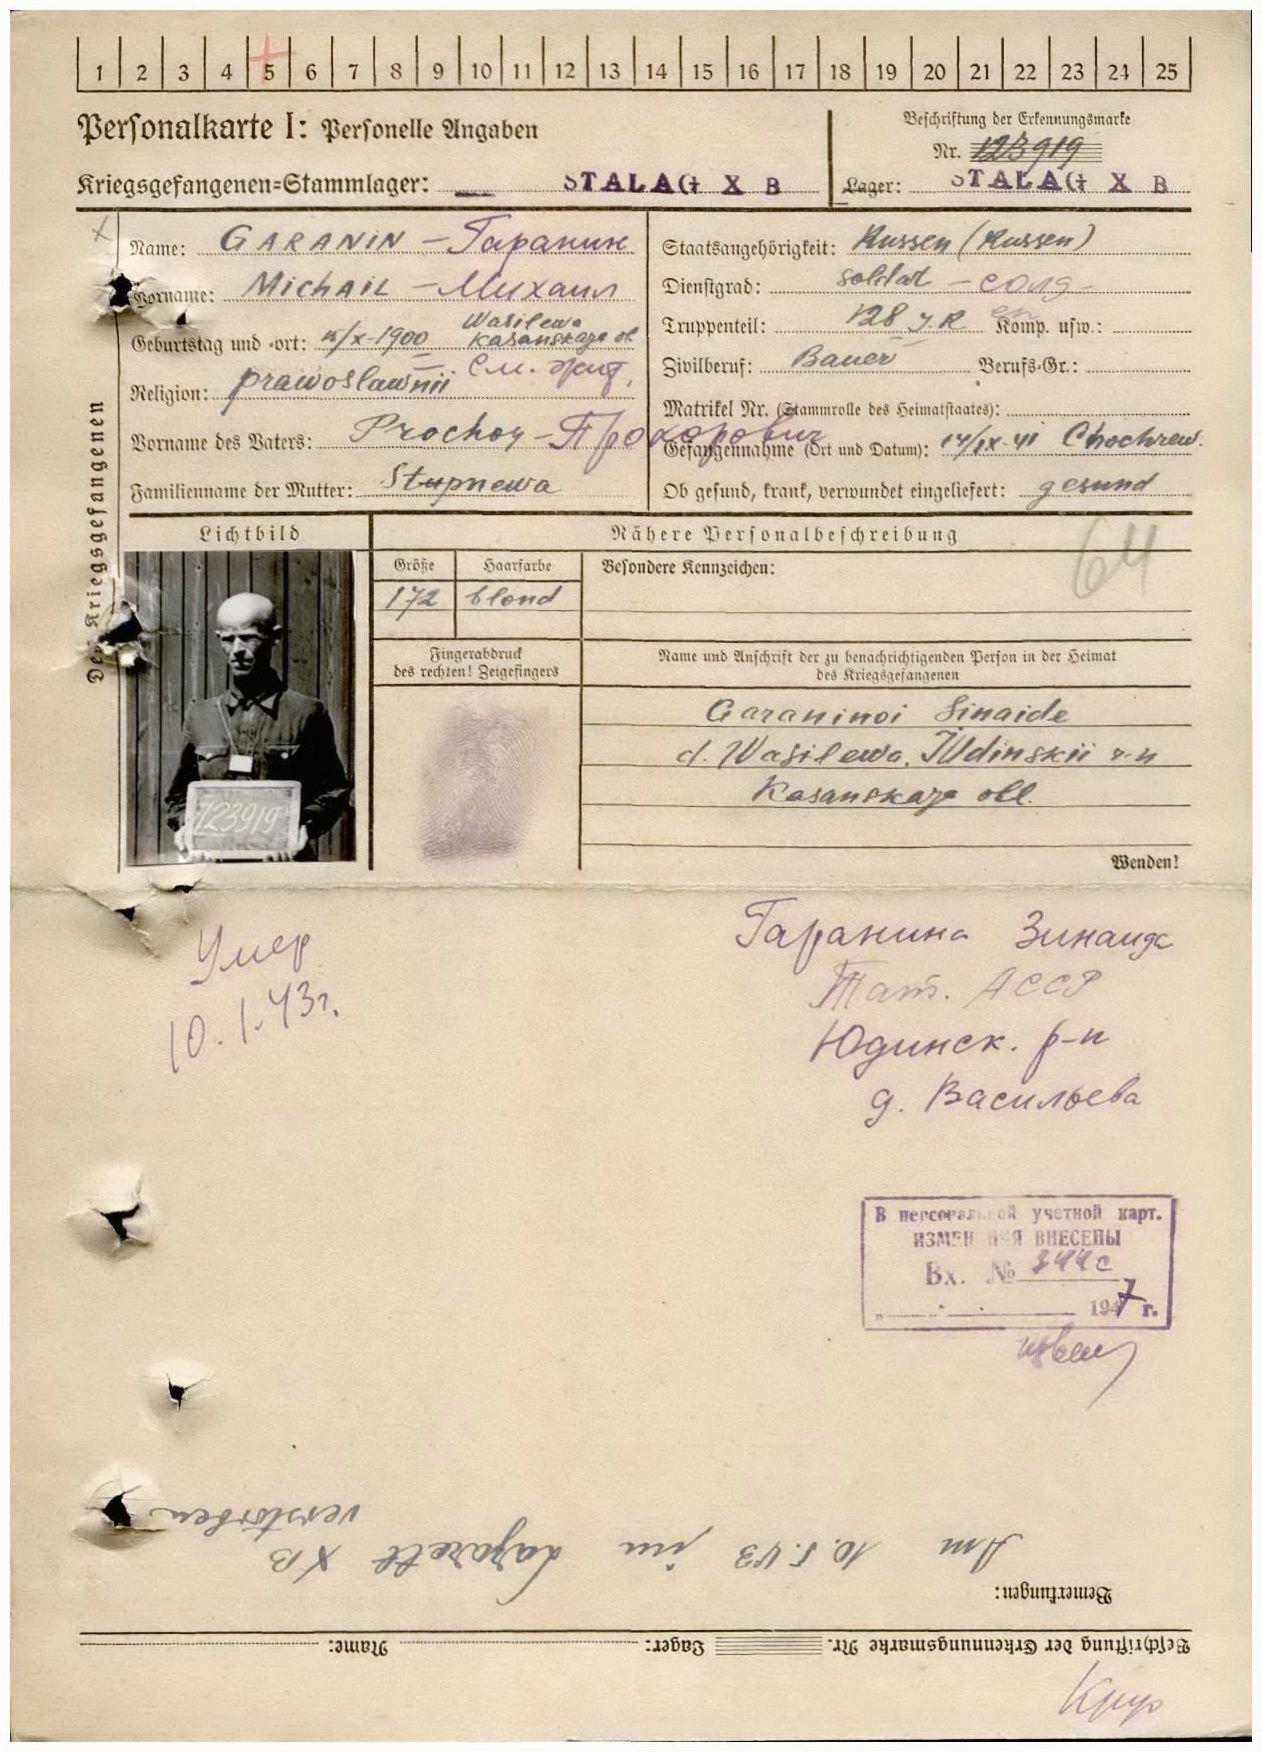 1 2 3 4 5 6 7 8 9 10 11 12 13 14 15 16 17 18 19 20 21 22 23 24 25
Personalkarte I: Personelle Angaben
Beschriftung der Erkennungsmarke
Nr. 123919
Kriegsgefangenen=Stammlager: STALAG X B
Lager: STALAG X B
Des Kriegsgefangenen
Name: GARANIN – Гаранин
Vorname: MICHAIL – Михаил
Geburtstag und -ort: /X-1900 Wasilewa
Kasanskaja ob
Religion: prawoslawnii См. жит.
Vorname des Vaters: Prochor – Прохорович
Familienname der Mutter: Stupnewa
Staatsangehörigkeit: Russen (Russen)
Dienstgrad: soldat – солд –
Truppenteil: 128 J.R Komp. usw.:
Zivilberuf: Bauer Berufs=Gr.:
Matrikel Nr. (Stammrolle des Heimatstaates):
Gefangennahme (Ort und Datum): 14/IX-41 Chochrew.
Ob gesund, krank, verwundet eingeliefert: gesund
Lichtbild
Nähere Personalbeschreibung
64
Größe Haarfarbe Besondere Kennzeichen:
172 blond
123919
Fingerabdruck
des rechten! Zeigefingers
Name und Anschrift der zu benachrichtigenden Person in der Heimat
des Kriegsgefangenen
Garaninoi Sinaide
d. Wasilewa, Judinskii r-n
Kasanskaja obl.
Wenden!
Умер
10.1.43г.
Гаранина Зинаида
Тат. АССР
Юдинск. р-н
д. Васильева
В персональной учетной карт.
ИЗМЕНЕНИЯ ВНЕСЕНЫ
Вх. № 344с
1947 г.
Am 10.1.43 im Lazarett XB
verstorben
Bemerkungen:
Beschriftung der Erkennungsmarke Nr. Lager: Name: